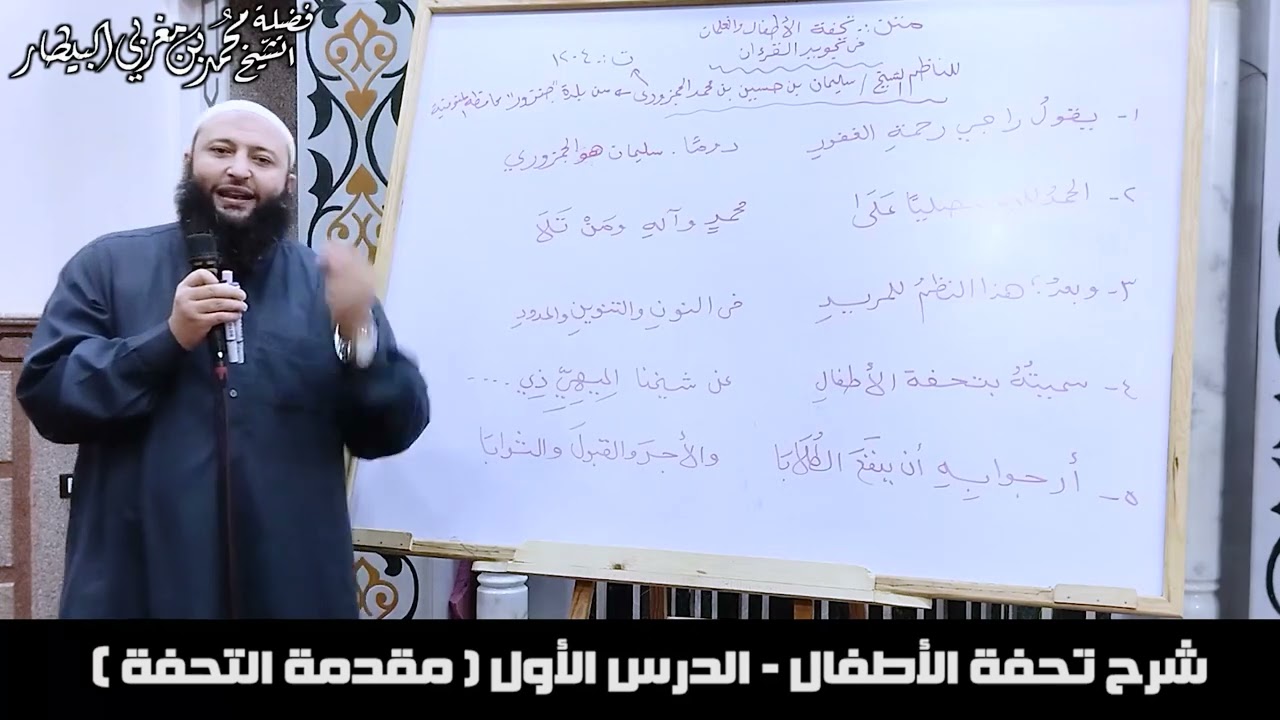 فضيلة الشيخ محمد بن مغربي البيطار
متن: تحفة الأطفال والغلمان
في تجويد القرءان
للناظم الشيخ / سليمان بن حسين بن محمد الجمزوري من بلدة "جنزور" محافظة المنوفية
ت: ١٢٠٤
١- يقولُ راجي رحمةِ الغفورِ دومًا. سليمان هو الجمزوري
٢- الحمدُ للهِ مصليًا عَلَىٰ محمدٍ وآلهِ ومَنْ تَلَا
٣- وبعدُ: هذا النظمُ للمريدِ فى النونِ والتنوينِ والمدودِ
٤- سميتُهُ بتحفة الأطفالِ عن شيخنا المِيهِيِّ ذِي ....
٥- أرجوا بِهِ أن ينفَعَ الطُّلَّابَا والأجرَ والقبولَ والثوابَا
شرح تحفة الأطفال - الدرس الأول ( مقدمة التحفة )